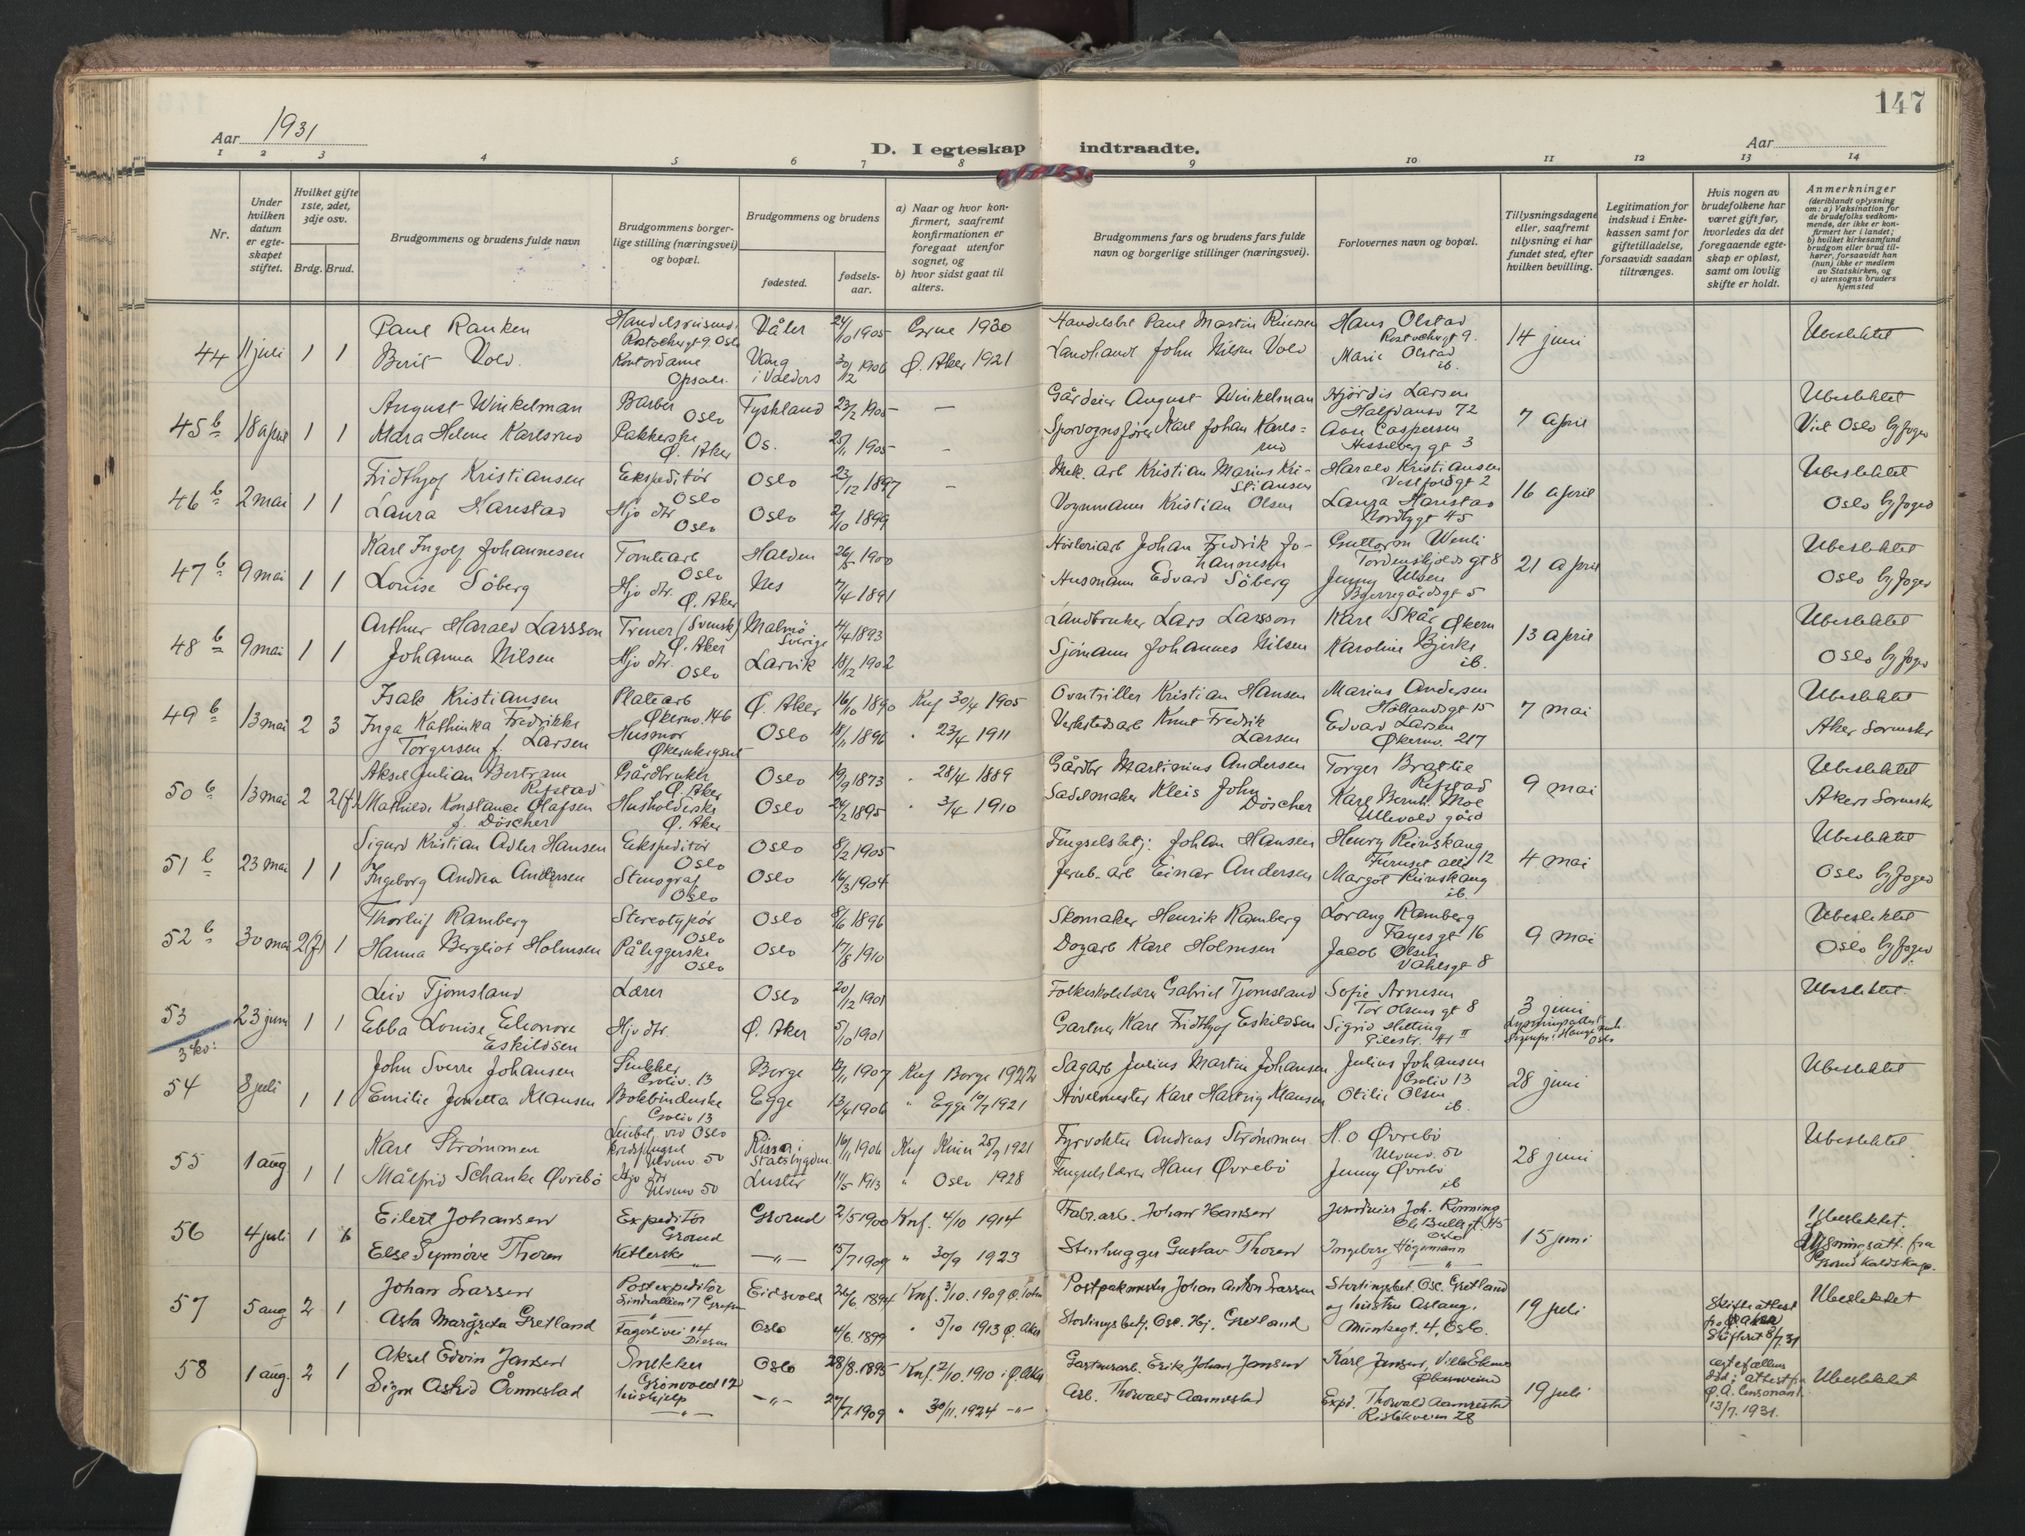 147
Aar 1931
D. I egteskap indtraadte.
Aar
1 2 3 4 5 6 7 8 9 10 11 12 13 14
Nr.
Under hvilken datum er egteskapet stiftet.
Hvilket gifte 1ste, 2det, 3dje osv.
Brdg. Brud.
Brudgommens og brudens fulde navn
Brudgommens borgerlige stilling (næringsvei) og bopæl.
Brudgommens og brudens
fødested.
fødselsaar.
a) Naar og hvor konfirmert, saafremt konfirmationen er foregaat utenfor sognet, og
b) hvor sidst gaat til alters.
Brudgommens fars og brudens fars fulde navn og borgerlige stillinger (næringsvei).
Forlovernes navn og bopæl.
Tillysningsdagene eller, saafremt tillysning ei har fundet sted, efter hvilken bevilling.
Legitimation for indskud i Enkekassen samt for giftetilladelse, forsaavidt saadan tiltrænges.
Hvis nogen av brudefolkene har været gift før, hvorledes da det foregaaende egteskap er opløst, samt om lovlig skifte er holdt.
Anmerkninger
(deriblandt oplysning om: a) Vaksination for de brudefolks vedkommende, der ikke er konfirmert her i landet;
b) hvilket kirkesamfund brudgom eller brud tilhører, forsaavidt han (hun) ikke er medlem av Statskirken, og
c) utensogns bruders hjemsted
44 11 juli 1 1
Paul Ranken Våler 24/10 1905 1930 Hans Olstad 14 juni Ubeslektet
Berit Vold Kontordame Vang i Valders 1906 Ø. Aker 1921 Landhandl John Nilsen Vold Marie Olstad ib.
45 b 18 april 1 1
August Winkelman Barber Oslo Tyskland 23/2 1905 — Gårdeier August Winkelman Hjørdis Larsen 7 april Ubeslektet
Mara Helene Karlsrud Pakkerske Ø. Aker Os. 25/11 1905 — Sporvognsfører Karl Johan Karlsrud Hesselberg gt 3 Oslo byfoged
46 b 2 mai 1 1
Fridthjof Kristiansen Ekspeditør Oslo Oslo 23/12 1897 — Mek. arb Kristian Marius Kristiansen Harald Kristiansen 16 april Ubeslektet
Laura Harestad Hj. dtr Oslo Oslo 1899 Vognmann Kristian Olsen Laura Harestad Nordbygt 45 Oslo byfoged
47 b 9 mai 1 1
Karl Ingolf Johannesen Tomtearb Oslo Halden 26/5 1900 Johan Fredrik Johannesen Tordenskjolds gt 8 21 april Ubeslektet
Louise Söberg Hj. dtr. Ø. Aker Nes 7/4 1891 Husmann Edvard Söberg Jenny Olsen Bjerregårdsgt 5 Oslo byfoged
48 b 9 mai 1 1
Arthur Harald Larsson Trener (Svensk) Ø. Aker Malmö Sverige 4/4 1893 Landbruker Lars Larsson Karl Skår Økern 13 april Ubeslektet
Johanna Nilsen Hj. dtr. Oslo Larvik 18/12 1902 Sjømann Johannes Nilsen Karoline Bjerke ib. Oslo byfoged
49 b 13 mai 2 3
Isak Kristiansen Platearb Økernv. 146 Ø. Aker 16/10 1890 Knf 30/4 1905 Kristian Hansen Marius Andersen 7 mai Ubeslektet
Inga Kathinka Fredrikke Torgersen f. Larsen Husmor Oslo 18/11 1896 " 23/4 1911 Verkstedsarb Knut Fredrik Larsen Edvard Larsen Økernv. 217
50 b 13 mai 2 2(f)
Aksel Julian Bertram Refstad Gårdbruker Ø. Aker Oslo 19/9 1873 " 28/4 1889 Gårdbr Martinius Andersen Torger Brattlie Refstad 9 mai Ubeslektet
Mathilde Konstance Olafsen f. Döscher Husholderske Ø. Aker Oslo 24/2 1895 " 3/4 1910 Sadelmaker Kleis John Döscher Karl Bernh. Moe Ullevold gård
51 b 23 mai 1 1
Sigurd Kristian Adler Hansen Ekspeditør Oslo Oslo 8/2 1905 Fengselsbtj: Johan Hansen Henry Rünskaug Furuset allé 12 4 mai Ubeslektet
Ingeborg Andrea Andersen Stenograf Oslo Oslo 16/3 1904 Jernb. arb Einar Andersen Margot Rünskaug ib. Oslo byfoged
52 b 30 mai 2(f) 1
Thorleif Ramberg Stereotypør Oslo Oslo 8/6 1896 Skomaker Henrik Ramberg Lorang Ramberg Fayesgt 16 9 mai Ubeslektet
Hanna Bergliot Holmsen Påleggerske Oslo Oslo 17/8 1910 Karl Holmsen Jacob Olsen Vahlsgt 8 Oslo byfoged
53 23 juni 1 1
Leiv Tjomsland Lærer Oslo 20/12 1901 Folkeskolelærer Gabriel Tjomsland Sofie Arnesen Tor Olsens gt 8 3 juni Ubeslektet.
Ebba Louise Eleonore Eskildsen Hj. dtr. Ø. Aker 5/10 1901 Gartner Karl Fridthjof Eskildsen Sigrid Pilestr.
54 8 juli 1 1
John Sverre Johansen Snekker Soliv. 13 Borge 13/11 1907 Knf Borge 1922 Sagarb Julius Martin Johansen Julius Johansen Soliv 13 28 juni Ubeslektet
Emilie Jenetta Klausen Bokbinderske Soliv 13 Egge 13/4 1906 " Egge 10/7 1921 Høvelmester Karl Hartvig Klausen Otilie Olsen ib.
55 1 aug 1 1
Karl Strømmen Ulvenv. 50 Rissa i Stadsbygden 16/11 1906 Knf 25/9 1921 Fyrvokter Andreas Strømmen H. O Øvrebö Ulvenv. 50 28 juni Ubeslektet
Målfrid Schanke Øvrebö Hj. dtr Ulvenv 50 Luster 11/5 1913 " Oslo 1928 Fengselslærer Hans Øvrebö Jenny Øvrebö ib
56 4 juli 1
Eilert Johansen Expeditør Grorud Grorud 2/5 1900 Knf. 4/10 1914 Fabr.arb. Johan Hansen Joh. Rønning Ole Bullsgt. 45 Oslo 15 juni Ubeslektet.
Else Synnøve Thoren — " — 1909 " 30/9 1923 Stenhugger Gustav Thoren Ingeborg Högemann — " —
57 5 aug 2 1
Johan Larsen Postexpeditør Eidsvold 26/6. 1894 Knf. 3/10. 1909 Postpakmester Johan Anton Larsen Stortingsbet. Osc. Gretland 19 juli Skifteattest Ubeslektet
Asta Margreta Gretland Oslo 4/6. 1899 " 5/10 1913 Ø. Aker Stortingsbetj. Osc. Hj. Gretland Munkegt. 4, Oslo. 8/7.31
58 1 aug. 2 1
Aksel Edvin Jansen Snekker Oslo 28/8. 1895 Knf. 2/10. 1910 i Ø. Aker Gartnerarb. Erik Johan Jansen Karl Jansen, 19 juli Ubeslektet
Signe Astrid Ånnestad hushjelp — " — — " — 27/7 1909 " 30/11. 1924 — " — Arb. Thorvald Aannestad Exped. Thorvald Aannestad 28 13/7. 1931.